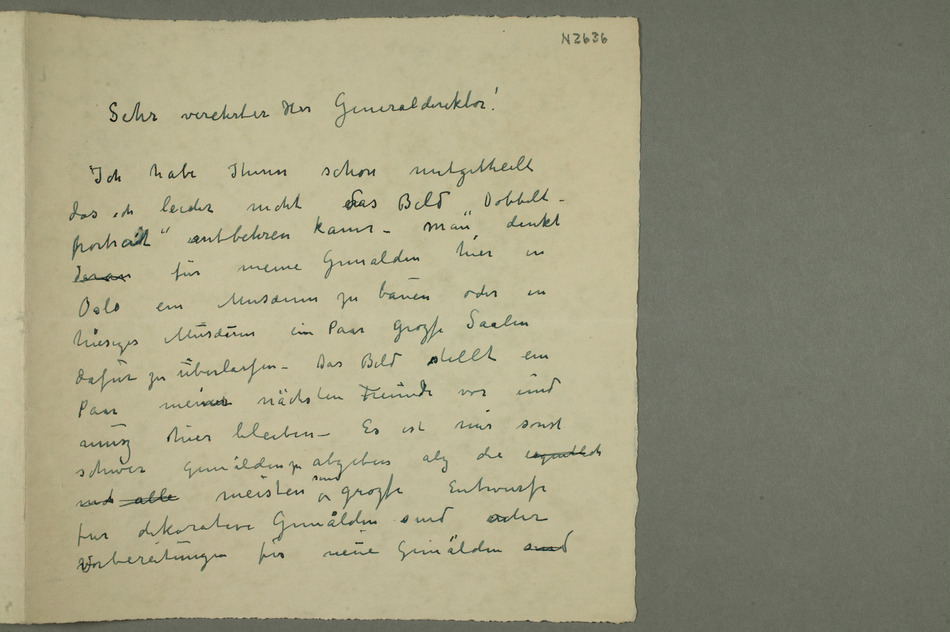 N2636
Sehr verehrter Herr Generaldirektor!
Ich habe Ihnen schon mitgetheilt
das ich leider nicht das Bild Dobbelt-
portrait" entbehren kann - man denkt
daran für meine Gemälden hier in
Oslo ein Museum zu bauen oder in
hiesiges Museum ein Paar grozse Saalen
dafür zu überlassen - Das Bild stellt ein
Paar meiner nächsten Freunde vor und
musz hier bleiben - Es ist mir sonst
schwer Gemälden zu abgeben alz die eigentlich
und alle meisten sind grozse Entwurfe
fur dekorative Gemälden sind oder
Vorbereitungen für neue Gemälden sind